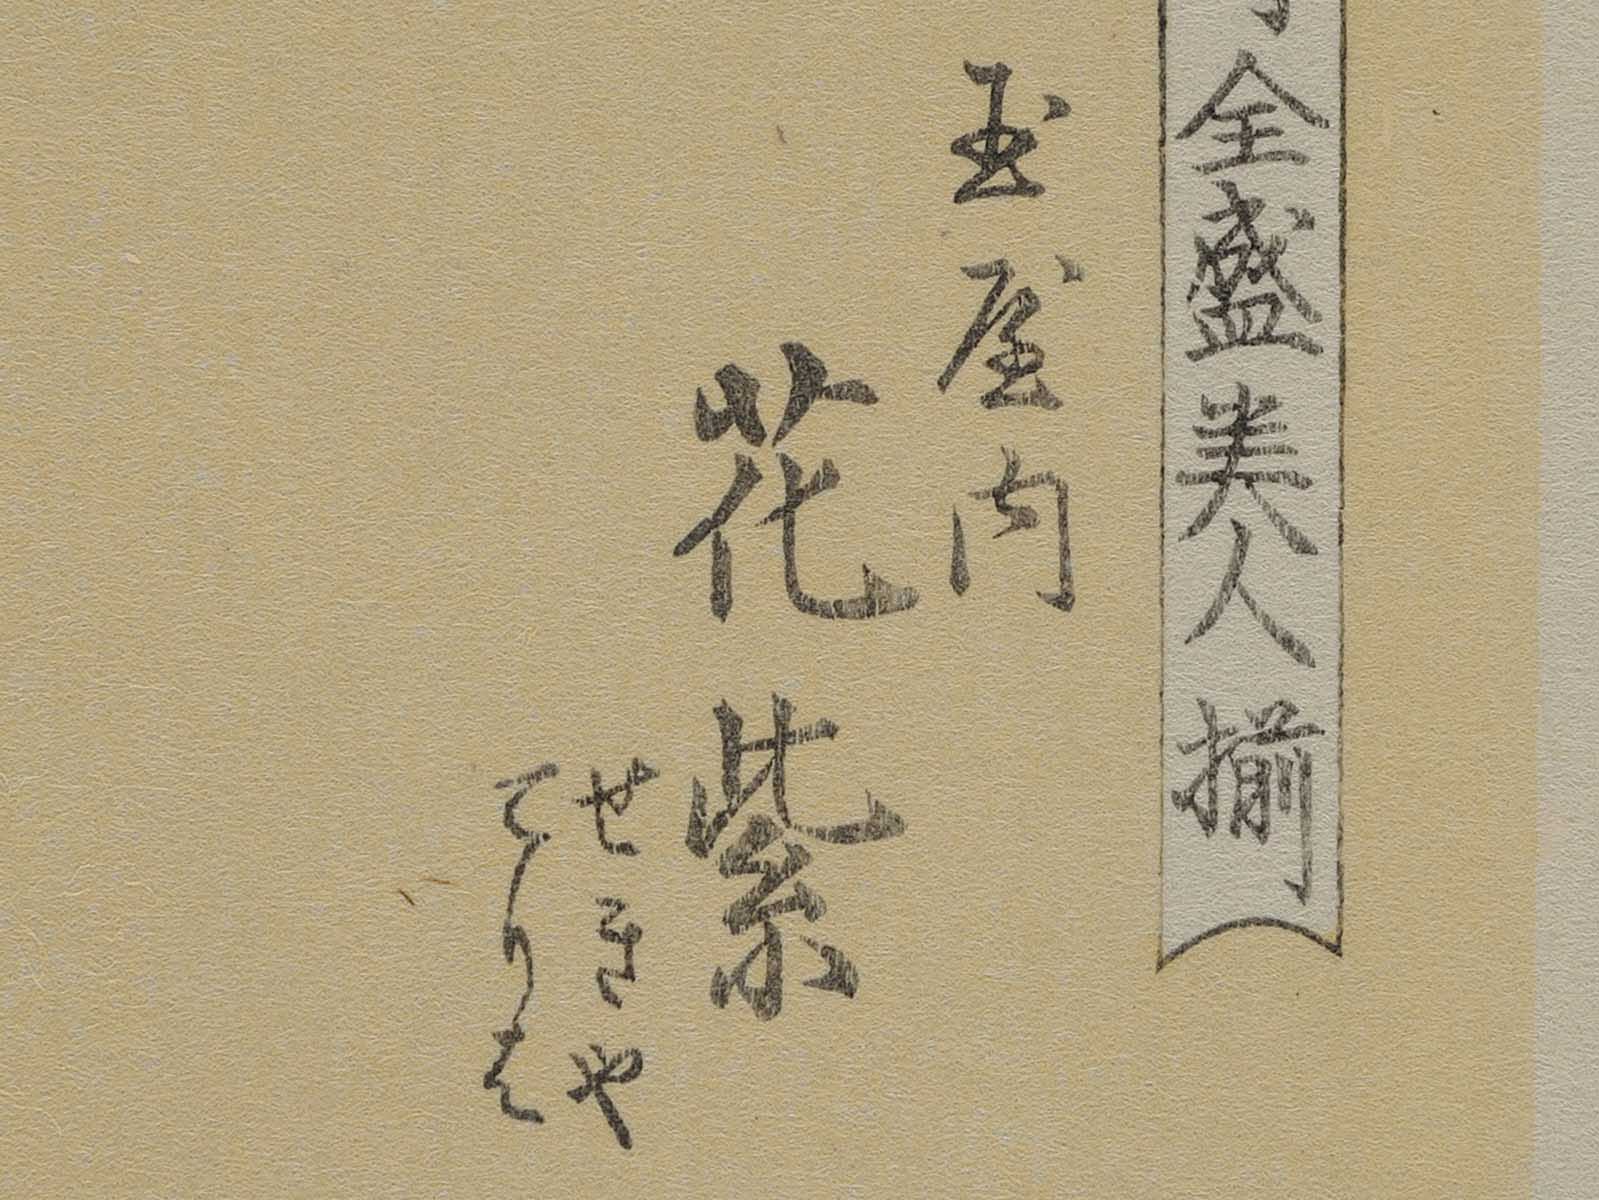 全盛美人揃
玉屋内
花紫
せきや
てりは